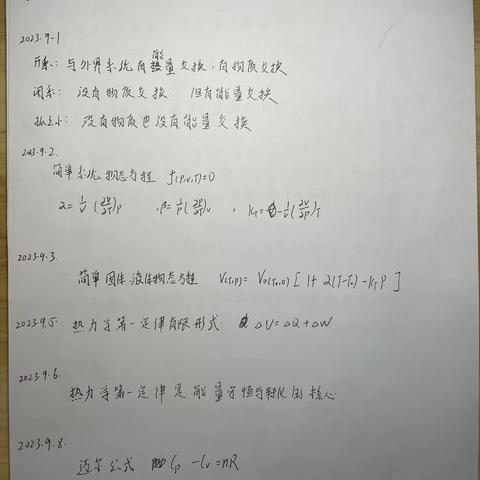 2023.9.1
开系：与外界系统有能量交换，有物质交换
闭系：没有物质交换，但有能量交换
孤立系：没有物质也没有能量交换
2023.9.2.
简单系统物态方程 f(P,V,T)=0
α=1/V (∂V/∂T)P ，β=1/P(∂P/∂T)V ，κT=-1/V(∂V/∂P)T
2023.9.3.
简单固体、液体物态方程 V(T,P)= V0(T0,0) [ 1+ α(T-T0) -κT P ]
2023.9.5. 热力学第一定律有限形式 ΔU=ΔQ+ΔW
2023.9.6.
热力学第一定律是能量守恒与转化的核心
2023.9.8.
迈尔公式 Cp -Cv=nR